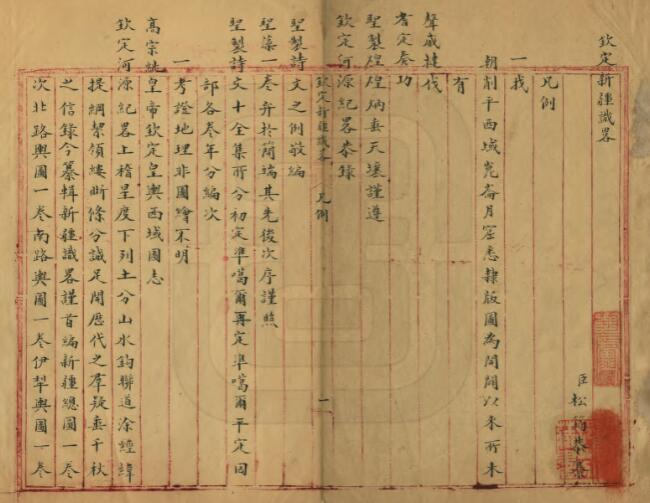 欽定新疆識畧
臣松筠恭纂
凡例
一我
朝削平西域崑崙月窟悉隸版圖為開闢以来所未
有
聲威撻伐
耆定奏功
聖製煌煌炳垂天壤謹遵
欽定河源紀畧恭錄
欽定新疆識畧 凡例 一
聖製詩文之例敬編
聖藻一卷弁於簡端其先後次序謹照
聖製詩文十全集所分初定準噶爾再定準噶爾平定回
部各卷年分編次
一考證地理非圖繪不明
高宗純皇帝欽定皇輿西域圖志
欽定河源紀畧上稽星度下列土分山水鉤聯道涂經緯
提綱挈領縷晰條分誠足闢歷代之羣疑垂千秋
之信錄今纂輯新疆識畧謹首編新疆總圖一卷
次北路輿圖一卷南路輿圖一卷伊犂輿圖一卷